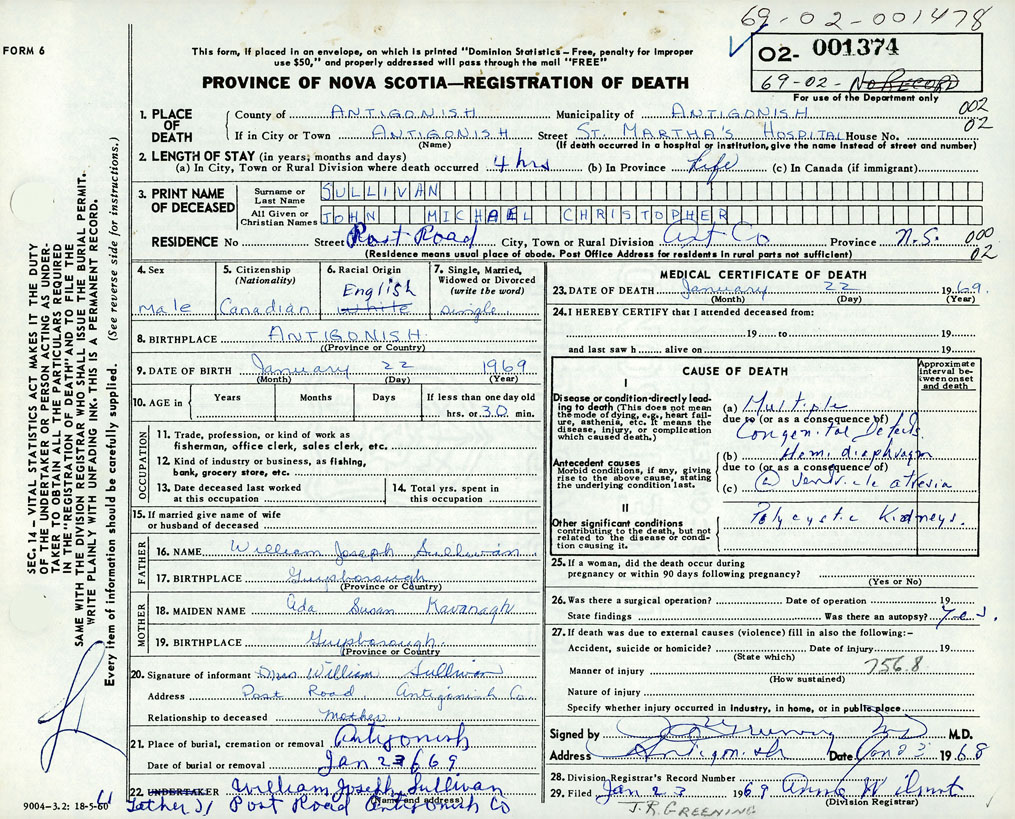 69-02-001478
FORM 6
This form, if placed in an envelope, on which is printed "Dominion Statistics—Free, penalty for improper
use $50," and properly addressed will pass through the mail "FREE"
02- 001374
69-02- No Record
For use of the Department only
PROVINCE OF NOVA SCOTIA—REGISTRATION OF DEATH
002
02
1. PLACE OF DEATH
County of ANTIGONISH Municipality of ANTIGONISH
If in City or Town ANTIGONISH Street ST. MARTHA'S HOSPITAL House No.
(Name) (If death occurred in a hospital or institution, give the name instead of street and number)
2. LENGTH OF STAY (in years; months and days)
(a) In City, Town or Rural Division where death occurred 4 hrs (b) In Province Life (c) In Canada (if immigrant)
3. PRINT NAME OF DECEASED
Surname or Last Name SULLIVAN
All Given or Christian Names JOHN MICHAEL CHRISTOPHER
RESIDENCE No Street Post Road City, Town or Rural Division Ant Co Province N.S.
000
02
(Residence means usual place of abode. Post Office Address for residents in rural parts not sufficient)
4. Sex
male
5. Citizenship
(Nationality)
Canadian
6. Racial Origin
English
white
7. Single, Married,
Widowed or Divorced
(write the word)
single
8. BIRTHPLACE ANTIGONISH
((Province or Country)
9. DATE OF BIRTH January 22 1969
(Month) (Day) (Year)
10. AGE in Years Months Days If less than one day old
hrs. or 30 min.
OCCUPATION
11. Trade, profession, or kind of work as
fisherman, office clerk, sales clerk, etc.
12. Kind of industry or business, as fishing,
bank, grocery store, etc.
13. Date deceased last worked
at this occupation
14. Total yrs. spent in
this occupation
15. If married give name of wife
or husband of deceased
FATHER
16. NAME William Joseph Sullivan
17. BIRTHPLACE Guysborough
(Province or Country)
MOTHER
18. MAIDEN NAME Ada Susan Kavanagh
19. BIRTHPLACE Guysborough
(Province or Country)
20. Signature of informant Mrs William Sullivan
Address Post Road, Antigonish Co
Relationship to deceased mother
21. Place of burial, cremation or removal Antigonish
Date of burial or removal Jan 23 69
22. UNDERTAKER William Joseph Sullivan
(Name and address)
Post Road Antigonish Co
MEDICAL CERTIFICATE OF DEATH
23. DATE OF DEATH January 22 1969.
(Month) (Day) (Year)
24. I HEREBY CERTIFY that I attended deceased from:
19 to 19
and last saw h alive on 19
CAUSE OF DEATH
Approximate
interval be-
tween onset
and death
I
Disease or condition-directly lead-
ing to death (This does not mean
the mode of dying, e.g., heart fail-
ure, asthenia, etc. It means the
disease, injury, or complication
which caused death.)
(a) Multiple
due to (or as a consequence of)
Congenital Defects
(b) Hemi diaphragm
due to (or as a consequence of)
(c) ventricle atresia
Antecedent causes
Morbid conditions, if any, giving
rise to the above cause, stating
the underlying condition last.
II
Other significant conditions
contributing to the death, but not
related to the disease or condi-
tion causing it.
Polycystic Kidneys.
25. If a woman, did the death occur during
pregnancy or within 90 days following pregnancy?
(Yes or No)
26. Was there a surgical operation? Date of operation 19
State findings Was there an autopsy? Yes.
27. If death was due to external causes (violence) fill in also the following:–
Accident, suicide or homicide? Date of injury 19
(State which)
Manner of injury 756.8
(How sustained)
Nature of injury
Specify whether injury occurred in industry, in home, or in public place
Signed by M.D.
Address Antigonish Date Jan 23 1968
28. Division Registrar's Record Number
29. Filed Jan 23 1969
(Division Registrar)
J.R. GREENING
SEC. 14 – VITAL STATISTICS ACT MAKES IT THE DUTY
OF THE UNDERTAKER OR PERSON ACTING AS UNDER-
TAKER TO OBTAIN ALL THE PARTICULARS REQUIRED
IN THE "REGISTRATION OF DEATH" AND TO FILE THE
SAME WITH THE DIVISION REGISTRAR WHO SHALL ISSUE THE BURIAL PERMIT.
WRITE PLAINLY WITH UNFADING INK. THIS IS A PERMANENT RECORD.
Every item of information should be carefully supplied. (See reverse side for instructions.)
9004–3.2: 18-5-60